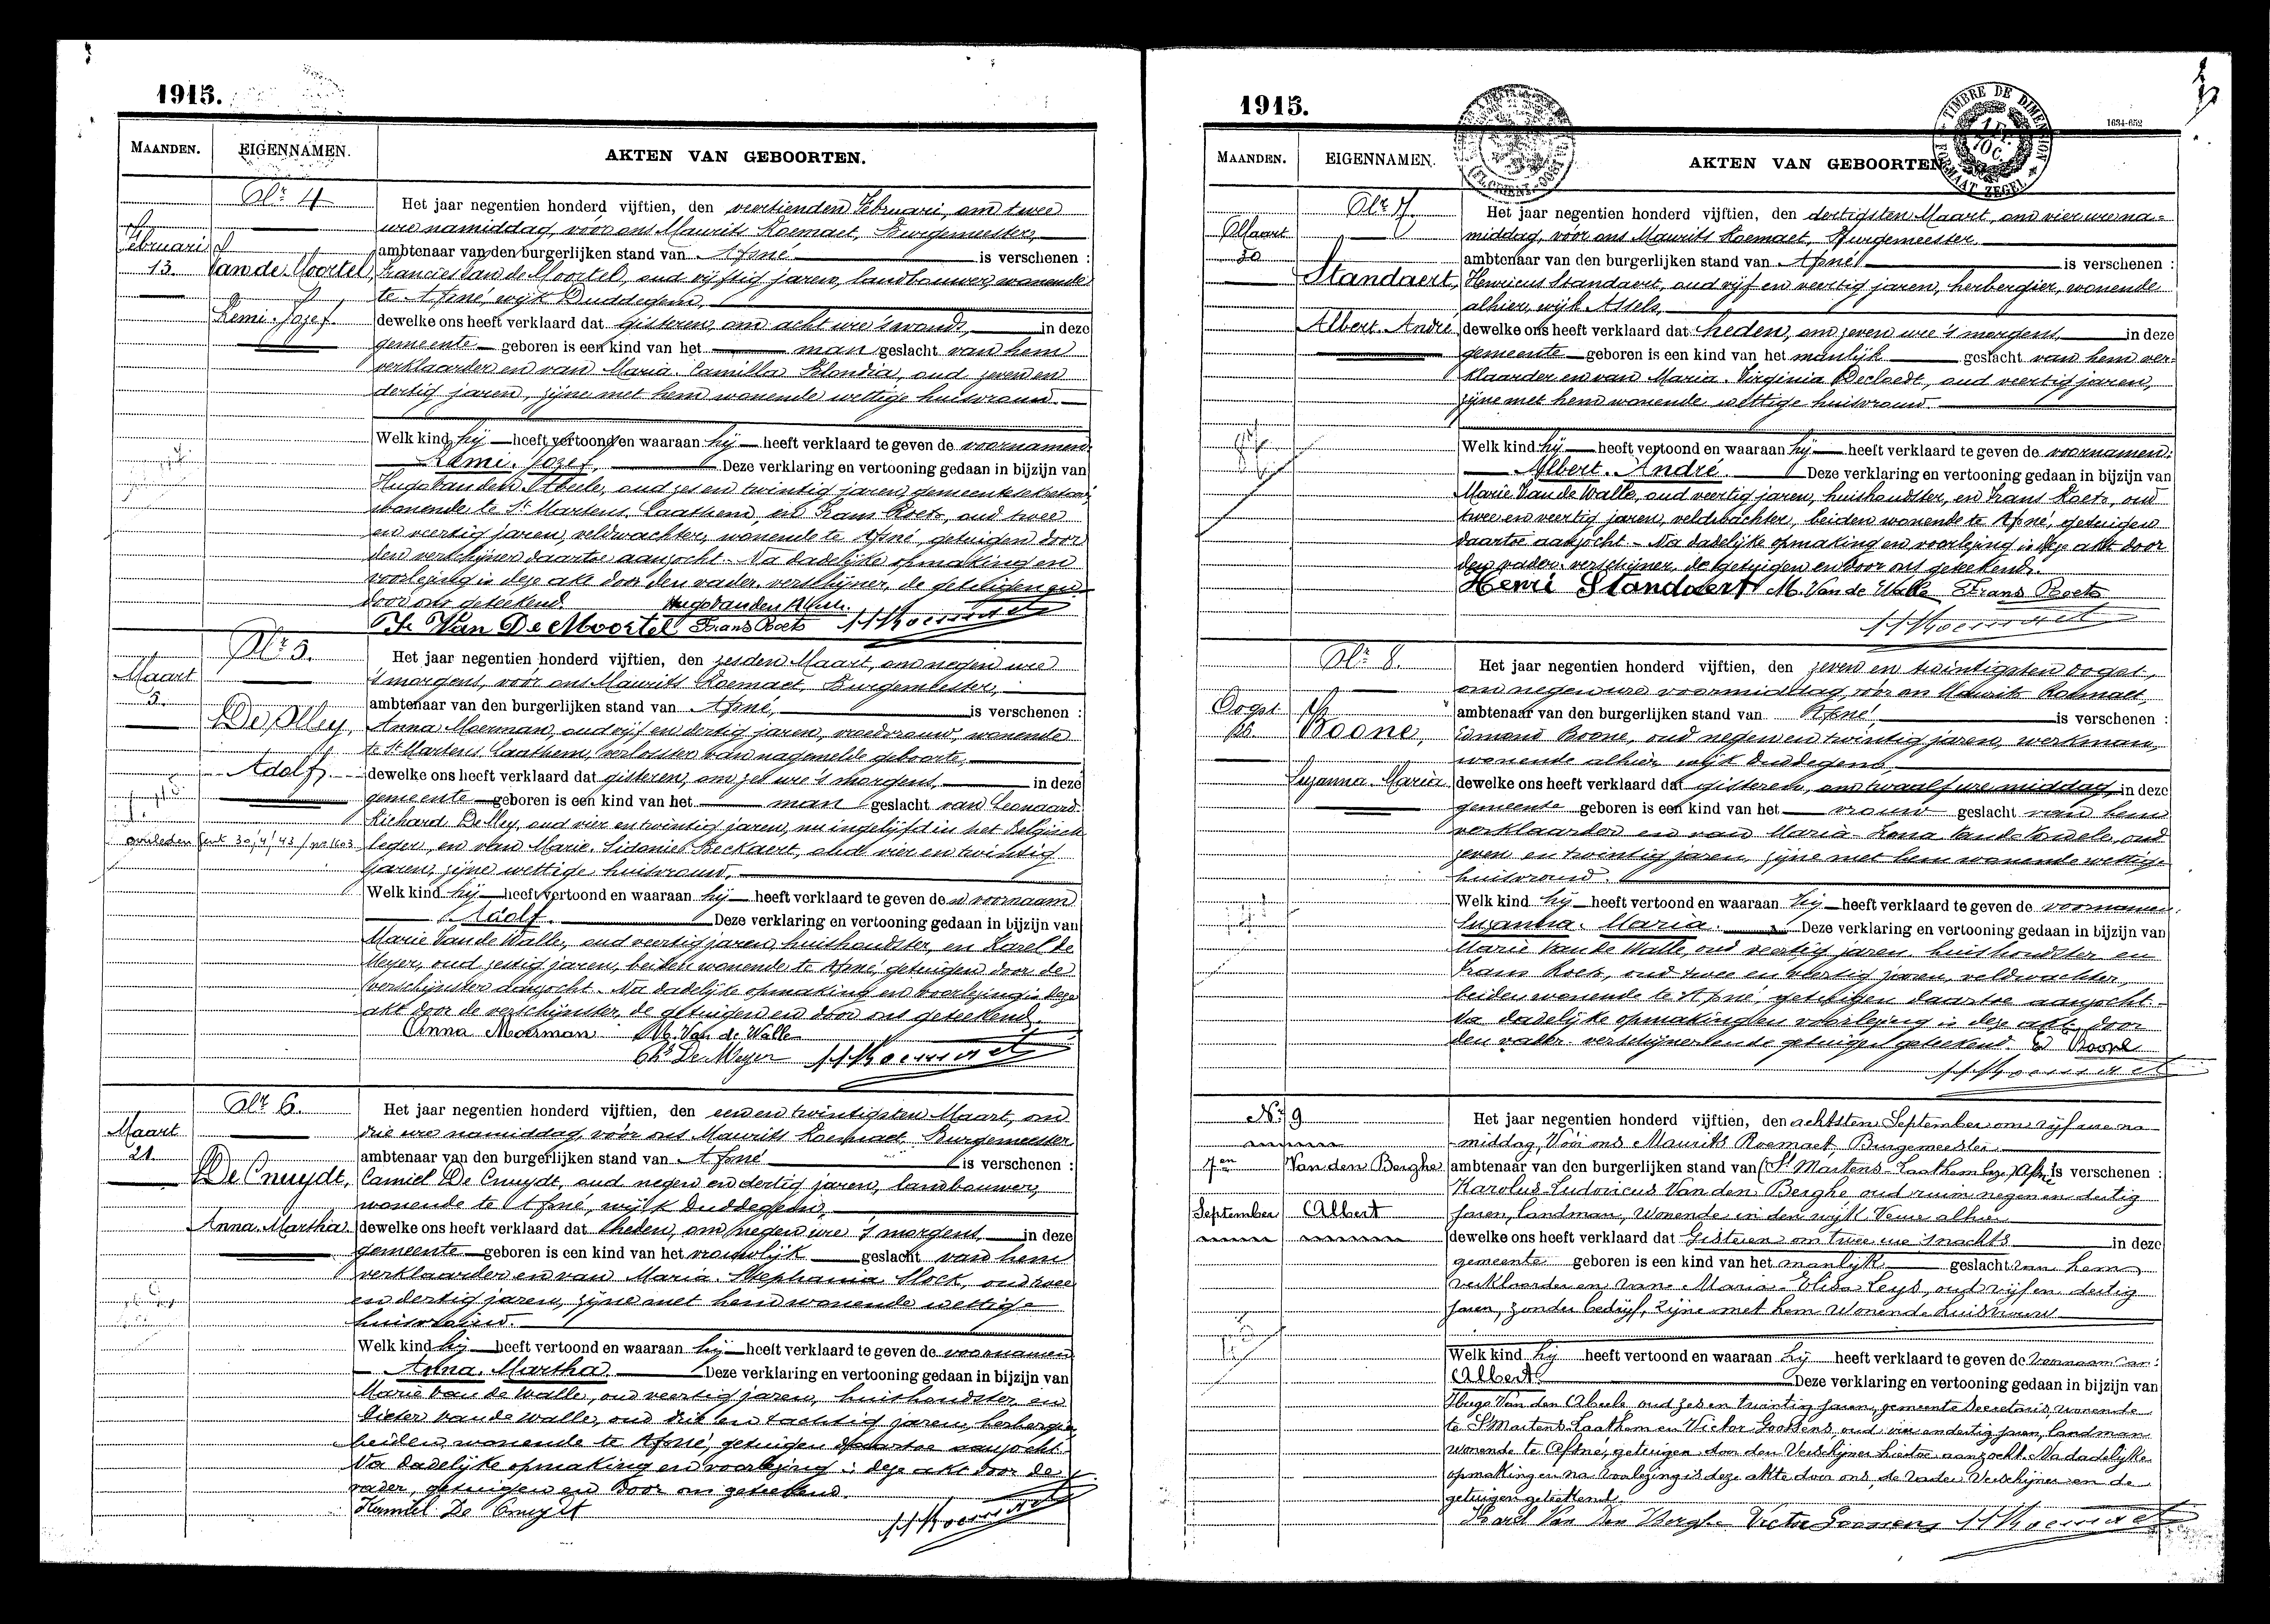 1915.
MAANDEN. EIGENNAMEN. AKTEN VAN GEBOORTEN.
Nr 4
Februari
13.
Van de Moortel,
Remi-Jozef.
Het jaar negentien honderd vijftien, den veertienden Februari, om twee
ure namiddag, vóór ons Maurits Roemaet, Burgemeester,
ambtenaar van den burgerlijken stand van Afsné is verschenen :
Francies Van de Moortel, oud vijftig jaren, landbouwer, wonende
te Afsné, wijk Duddegem,
dewelke ons heeft verklaard dat gisteren, om acht ure 's avonds, in deze
gemeente geboren is een kind van het man geslacht van hem
verklaarder en van Maria-Camilla Blondia, oud zeven en
dertig jaren, zijne met hem wonende wettige huisvrouw.
Welk kind hij heeft vertoond en waaraan hij heeft verklaard te geven de voornamen:
Remi-Jozef. Deze verklaring en vertooning gedaan in bijzijn van
Hugo Van den Abeele, oud zes en twintig jaren, gemeentesekretaris,
wonende te St Martens-Laathem, en Frans Roets, oud twee
en veertig jaren, veldwachter, wonende te Afsné, getuigen door
den verschijner daartoe aanzocht. Na dadelijke opmaking en
voorlezing is deze akt door den vader-verschijner, de getuigen en
door ons geteekend. Hugo Van den Abeele.
Fr Van De Moortel Frans Roets M Roemaet
Nr 5.
Maart
5.
De Mey,
Adolf.
overleden Gent 30/4/43/ nr 1603
Het jaar negentien honderd vijftien, den zesden Maart, om negen ure
's morgens, vóór ons Maurits Roemaet, Burgemeester,
ambtenaar van den burgerlijken stand van Afsné, is verschenen :
Anna Moerman, oud vijf en dertig jaren, vroedvrouw, wonende
te St Martens-Laathem, verlosster van nagemelde geboorte,
dewelke ons heeft verklaard dat gisteren, om zes ure 's morgens, in deze
gemeente geboren is een kind van het man geslacht van Leonaard-
Richard De Mey, oud vier en twintig jaren, nu ingelijfd in het Belgisch
leger, en van Marie-Sidonie Beckaert, oud vier en twintig
jaren, zijne wettige huisvrouw,
Welk kind hij heeft vertoond en waaraan hij heeft verklaard te geven de n voornaam
Adolf. Deze verklaring en vertooning gedaan in bijzijn van
Marie Van de Walle, oud veertig jaren, huishoudster, en Karel De
Meyer, oud zestig jaren, beiden wonende te Afsné, getuigen door de
verschijnster aanzocht. Na dadelijke opmaking en voorlezing is deze
akt door de verschijnster, de getuigen en door ons geteekend.
Anna Moerman M. Van de Walle
Chs De Meyer M Roemaet
Nr 6.
Maart
21.
De Cnuydt,
Anna-Martha.
Het jaar negentien honderd vijftien, den een en twintigsten Maart, om
drie ure namiddag, vóór ons Maurits Roemaet, Burgemeester
ambtenaar van den burgerlijken stand van Afsné is verschenen :
Camiel De Cnuydt, oud negen en dertig jaren, landbouwer,
wonende te Afsné, wijk Duddegem,
dewelke ons heeft verklaard dat heden, om negen ure 's morgens, in deze
gemeente geboren is een kind van het vrouwlijk geslacht van hem
verklaarder en van Maria-Stephania Mock, oud twee
en dertig jaren, zijne met hem wonende wettige
huisvrouw.
Welk kind hij heeft vertoond en waaraan hij heeft verklaard te geven de voornamen
Anna-Martha. Deze verklaring en vertooning gedaan in bijzijn van
Marie Van de Walle, oud veertig jaren, huishoudster, en
Pieter Van de Walle, oud drie en tachtig jaren, herbergier,
beiden wonende te Afsné, getuigen daartoe aanzocht.
Na dadelijke opmaking en voorlezing is deze akt door de
vader, getuigen en door ons geteekend.
Kamiel De Cnuydt M Roemaet
1915.
TIMBRE DE DIMENSION FORMAAT ZEGEL
1 FR. 10 C.
1634-652
MAANDEN. EIGENNAMEN. AKTEN VAN GEBOORTEN.
Nr 7.
Maart
30
Standaert,
Albert-André
Het jaar negentien honderd vijftien, den dertigsten Maart, om vier ure na-
middag, vóór ons Maurits Roemaet, Burgemeester
ambtenaar van den burgerlijken stand van Afsné is verschenen :
Henricus Standaert, oud vijf en veertig jaren, herbergier, wonende
alhier, wijk Assels,
dewelke ons heeft verklaard dat heden, om zeven ure 's morgens, in deze
gemeente geboren is een kind van het manlijk geslacht van hem ver-
klaarder en van Maria-Virginia Decloedt, oud veertig jaren,
zijne met hem wonende wettige huisvrouw.
Welk kind hij heeft vertoond en waaraan hij heeft verklaard te geven de voornamen:
Albert-André. Deze verklaring en vertooning gedaan in bijzijn van
Marie Van de Walle, oud veertig jaren, huishoudster, en Frans Roets, oud
twee en veertig jaren, veldwachter, beiden wonende te Afsné, getuigen
daartoe aanzocht. Na dadelijke opmaking en voorlezing is deze akt door
den vader-verschijner, de getuigen en door ons geteekend.
Henri Standaert M. Van de Walle Frans Roets
M Roemaet
Nr 8.
Oogst
26
Boone,
Suzanna-Maria.
Het jaar negentien honderd vijftien, den zeven en twintigsten oogst,
om negen ure voormiddag, vóór ons Maurits Roemaet,
ambtenaar van den burgerlijken stand van Afsné, is verschenen :
Edmond Boone, oud negen en twintig jaren, werkman,
wonende alhier wijk Duddegem,
dewelke ons heeft verklaard dat gisteren, om twaalf ure middag, in deze
gemeente geboren is een kind van het vrouw geslacht van hem
verklaarder en van Maria- Van de Vewele, oud
zeven en twintig jaren, zijne met hem wonende wettige
huisvrouw.
Welk kind hij heeft vertoond en waaraan hij heeft verklaard te geven de voornamen:
Suzanna-Maria. Deze verklaring en vertooning gedaan in bijzijn van
Marie Van de Walle, oud veertig jaren, huishoudster en
Frans Roets, oud twee en veertig jaren, veldwachter,
beiden wonende te Afsné, getuigen daartoe aanzocht.
Na dadelijke opmaking en voorlezing is deze akt door
den vader-verschijner en de getuigen geteekend. E Boone
M Roemaet
Nr 9
7en
September
Van den Berghe
Albert
Het jaar negentien honderd vijftien, den achtsten September om vijf ure na
middag, Vóór ons Maurits Roemaet, Burgemeester
ambtenaar van den burgerlijken stand van (St Martens-Laathem lege) Afsné is verschenen :
Karolus Ludovicus Van den Berghe oud ruim negen en dertig
jaren, landman, wonende in den wijk Veure alhier
dewelke ons heeft verklaard dat Gisteren om twee ure snachts in deze
gemeente geboren is een kind van het manlijk geslacht van hem
verklaarder en van Maria-Elisa Leys, oud vijf en dertig
jaren, zonder bedrijf, zijne met hem wonende huisvrouw
Welk kind hij heeft vertoond en waaraan hij heeft verklaard te geven de voornaam van:
Albert Deze verklaring en vertooning gedaan in bijzijn van
Hugo Van den Abeele oud zes en twintig jaren, gemeente Secretaris, wonende
te St Martens-Laathem en Victor Goossens oud vier en dertig jaren, landman
wonende te Afsné, getuigen door den Verschijner hiertoe aanzocht. Na dadelijke
opmaking en na voorlezing is deze akte door ons, de Vader Verschijner en de
getuigen geteekend.
Karel Van Den Berghe Victor Goossens M Roemaet